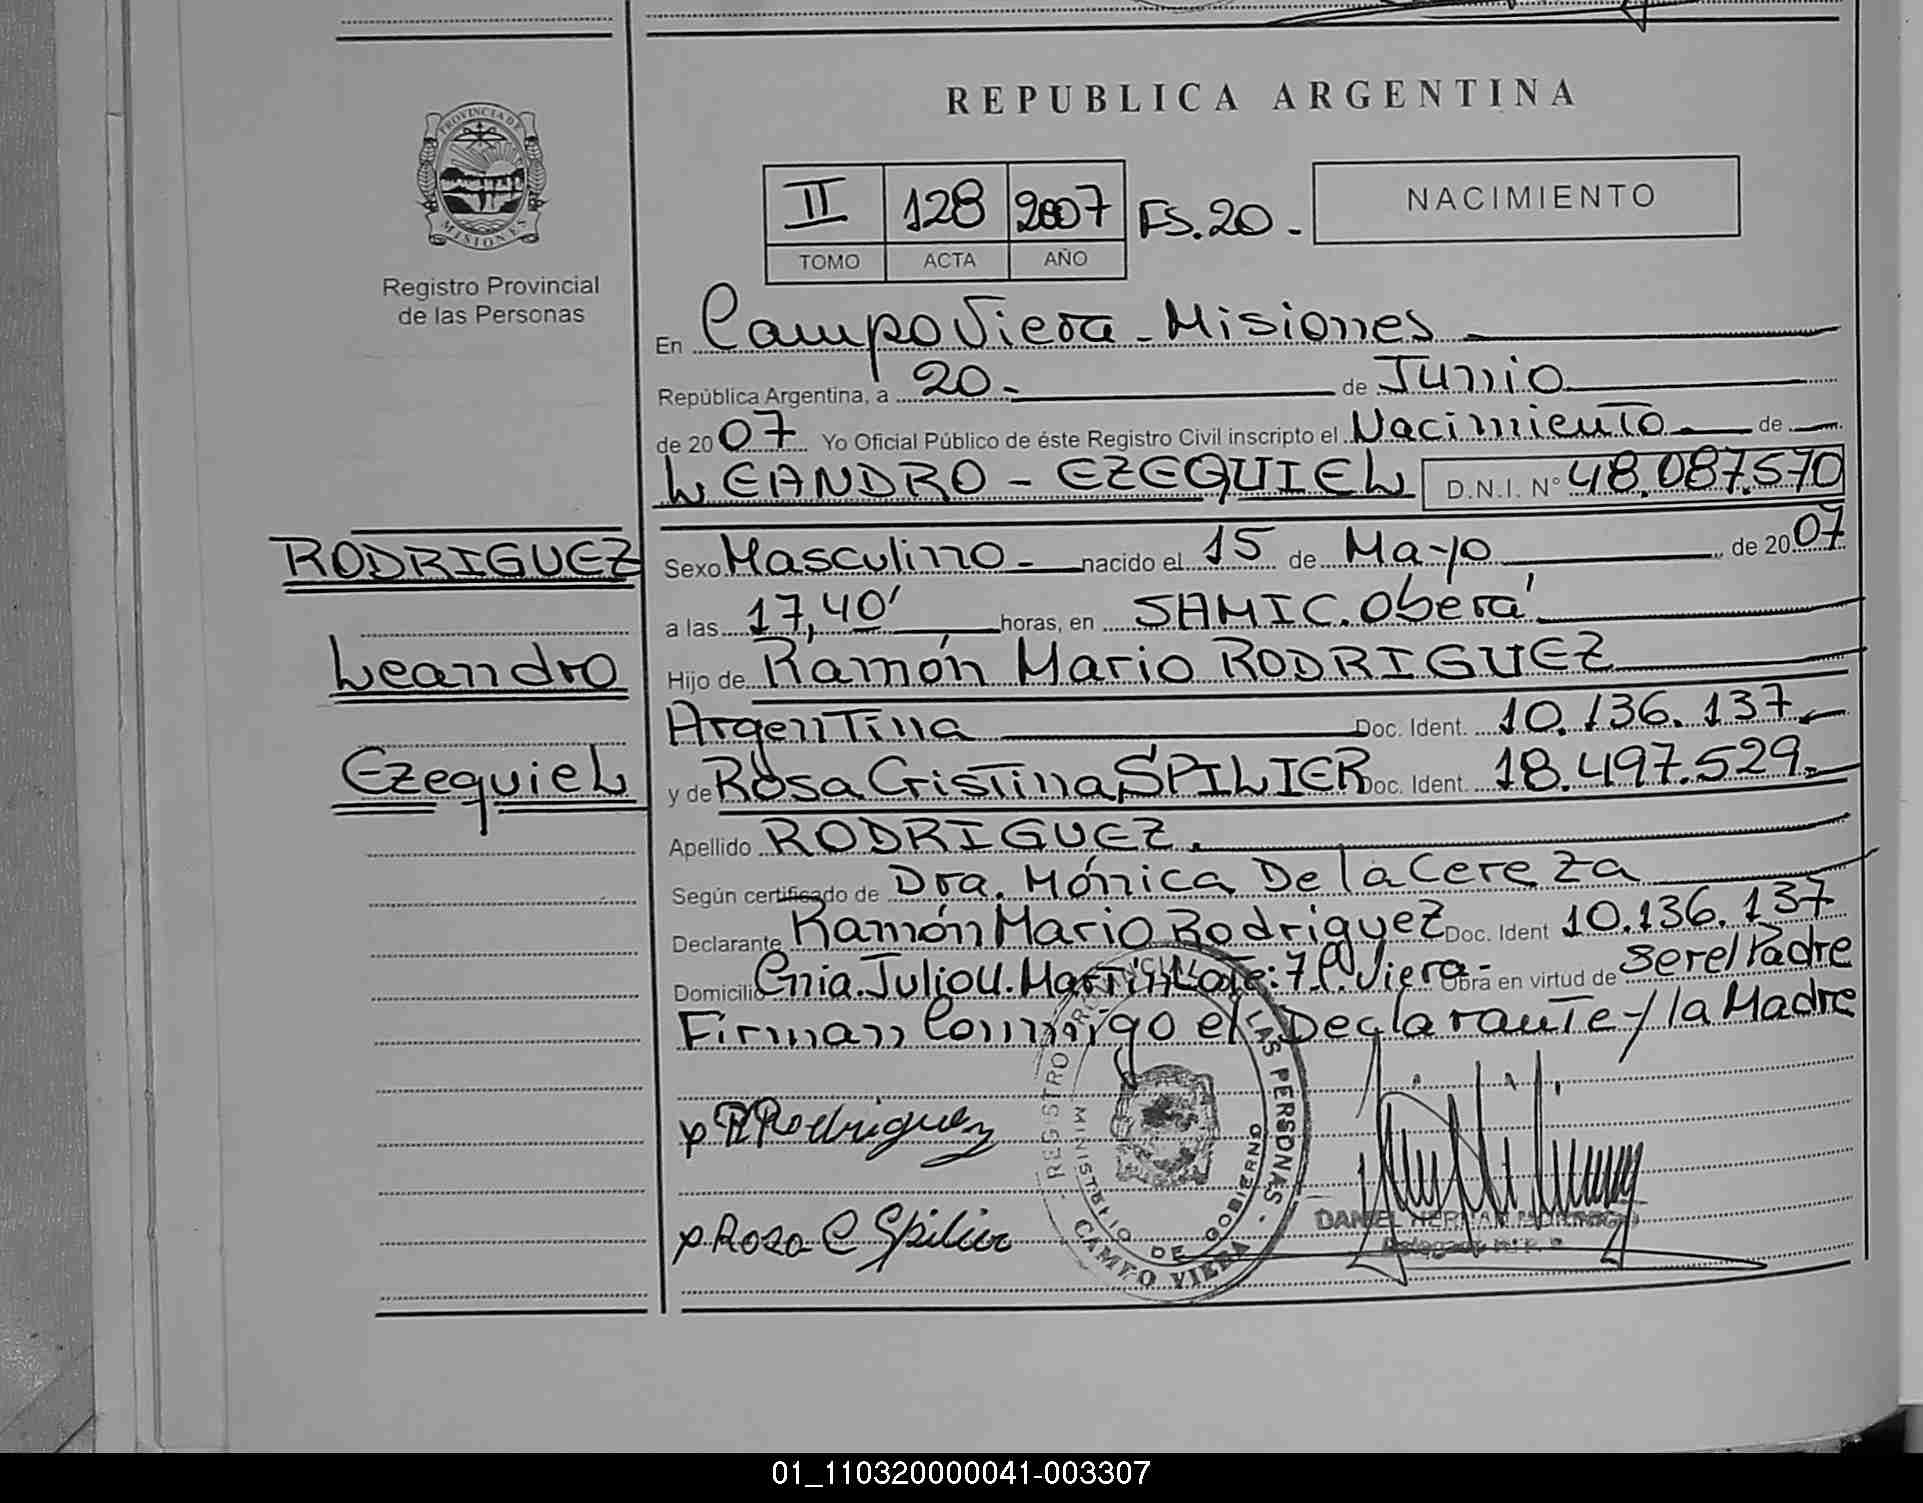 REPUBLICA ARGENTINA
PROVINCIA DE
MISIONES
Registro Provincial
de las Personas
II 128 2007 Fs. 20.-
TOMO ACTA AÑO
NACIMIENTO
En Campo Viera - Misiones
República Argentina, a 20.- de Junio
de 2007 Yo Oficial Público de éste Registro Civil inscripto el Nacimiento de
LEANDRO - EZEQUIEL D.N.I. N° 48.087.570
RODRIGUEZ
Leandro
Ezequiel
Sexo Masculino - nacido el 15 de Mayo de 2007
a las 17,40' horas, en SAMIC. Oberá
Hijo de Ramón Mario RODRIGUEZ
Argentina Doc. Ident. 10.136.137.-
y de Rosa Cristina SPILIER Doc. Ident. 18.497.529.-
Apellido RODRIGUEZ.
Según certificado de Dra. Mónica De la Cereza
Declarante Ramón Mario Rodriguez Doc. Ident 10.136.137
Domicilio Cnia. Julio U. Martin Lote: 7 C. Viera - Obra en virtud de ser el Padre
Firman Conmigo el Declarante y la Madre
x R Rodriguez
x Rosa C Spilier
REGISTRO PROVINCIAL DE LAS PERSONAS -
MINISTERIO DE GOBIERNO
CAMPO VIERA
DANIEL HERNAN
01_110320000041-003307